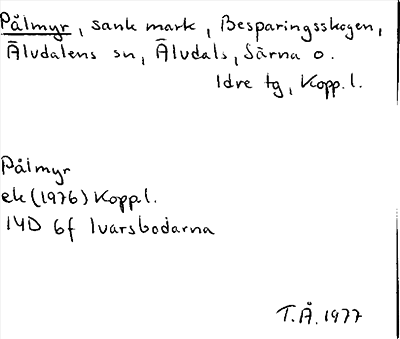 Pålmyr, sank mark, Besparingsskogen,
Älvdalens sn, Älvdals, Särna o.
Idre tg, Kopp. l.
Pålmyr
ek (1976) Koppl.
14D 6f Ivarsbodarna
T.Å. 1977